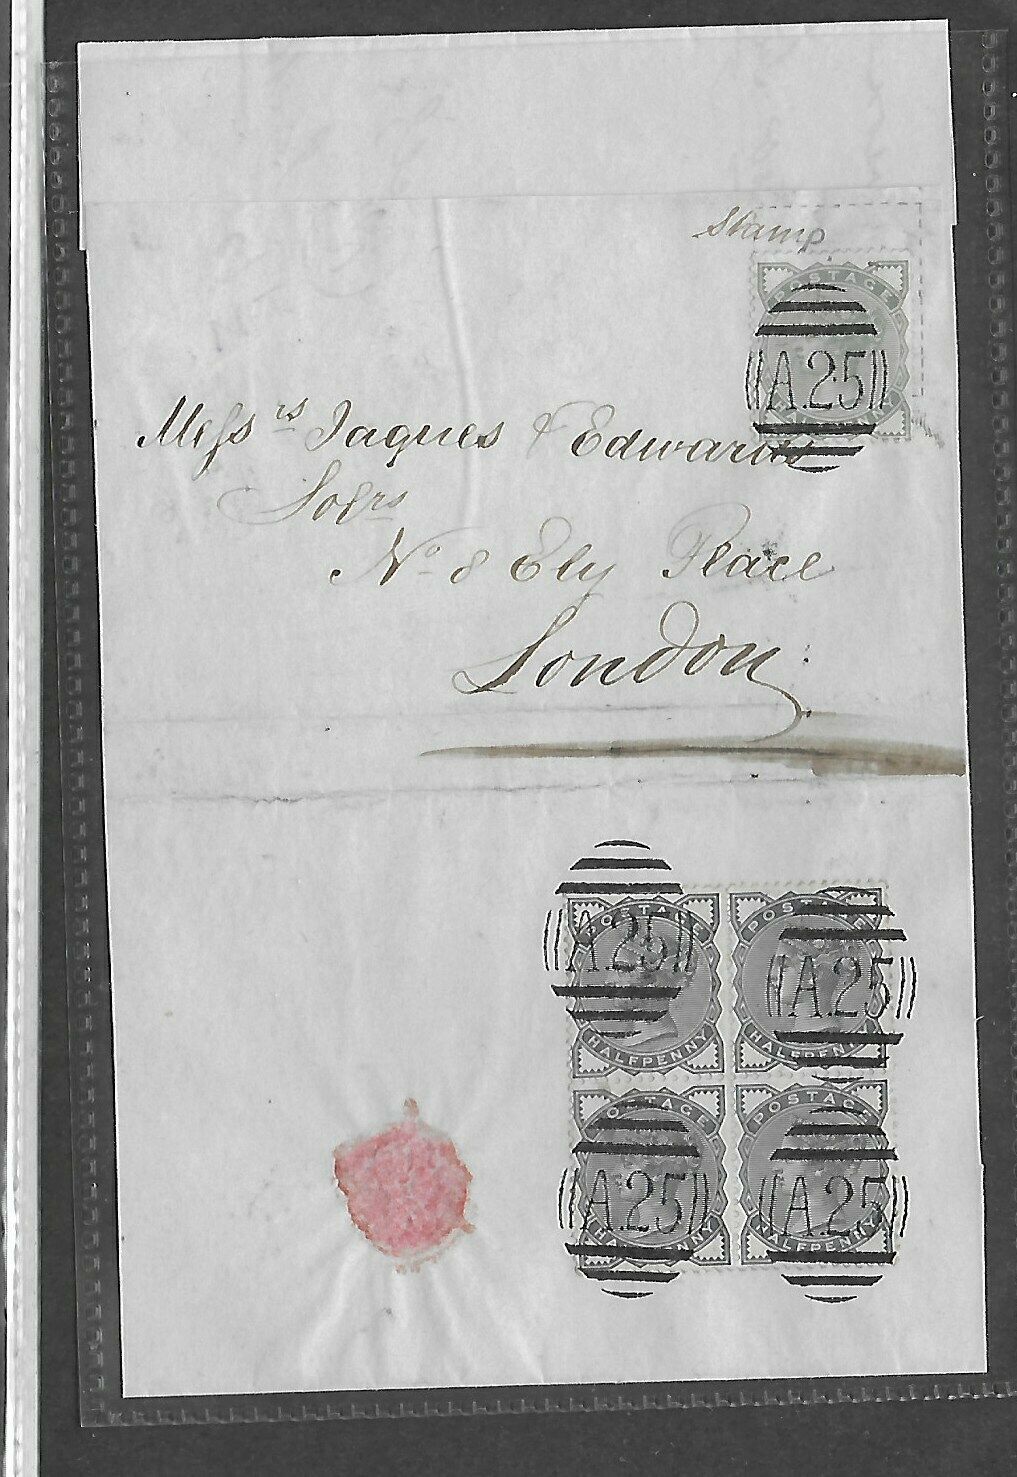 Stamp
POSTAGE
A25
Messrs Jaques & Edwards
Solrs
No 8 Ely Place
London
POSTAGE
A25
HALFPENNY
POSTAGE
A25
HALFPENNY
POSTAGE
A25
HALFPENNY
POSTAGE
A25
HALFPENNY